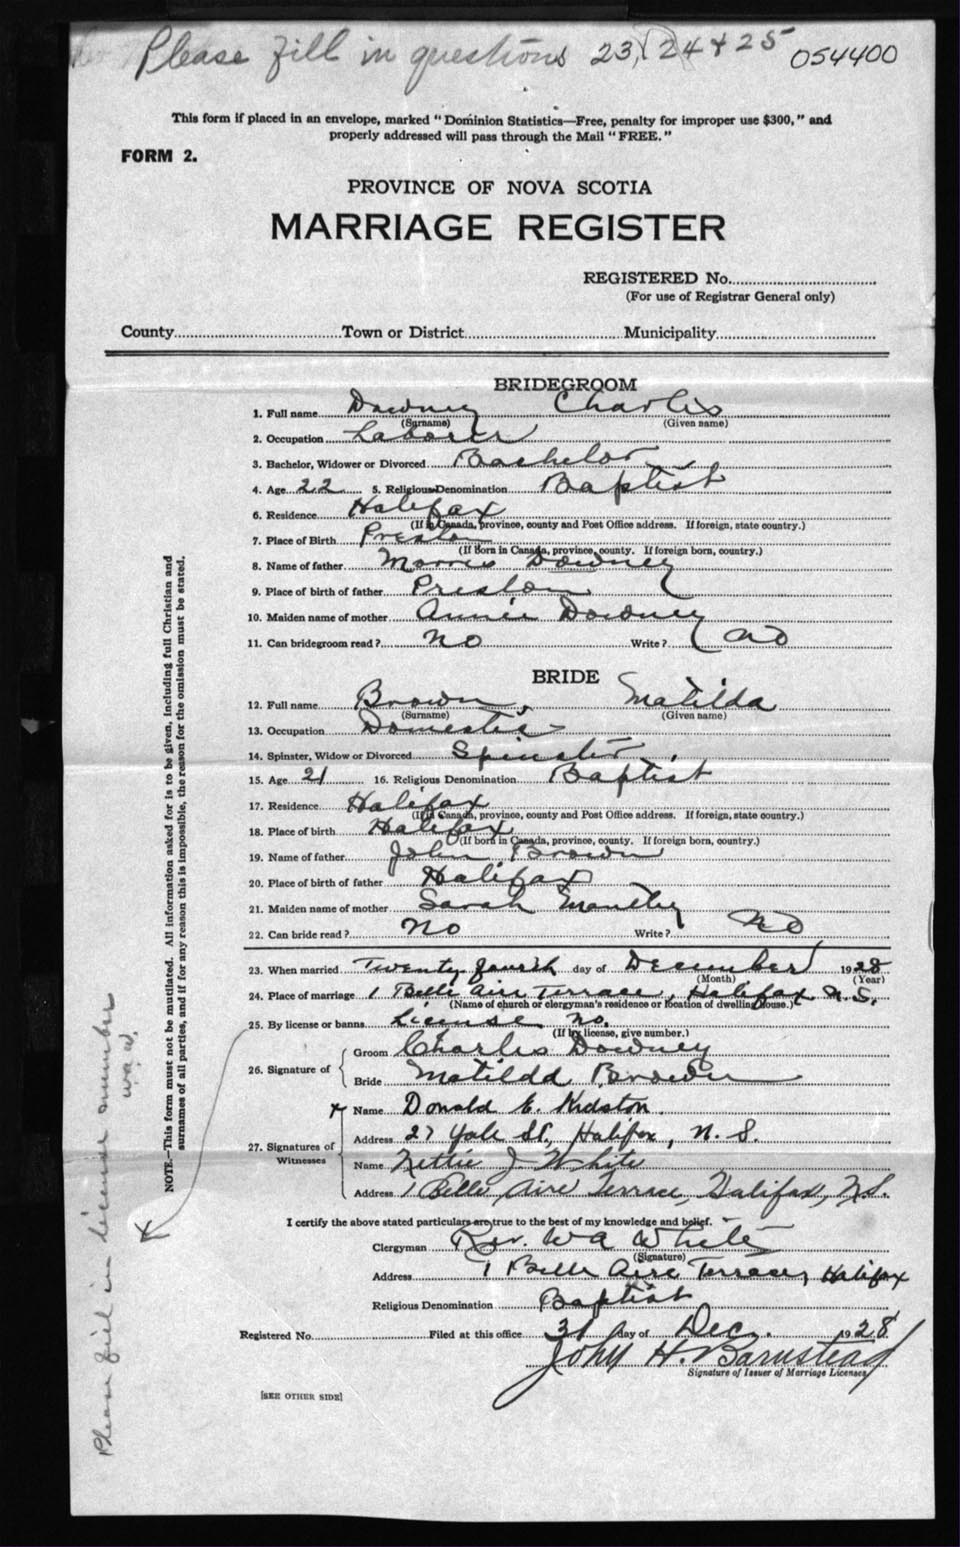 Please fill in questions 23, 24 & 25
054400
This form if placed in an envelope, marked "Dominion Statistics—Free, penalty for improper use $300," and
properly addressed will pass through the Mail "FREE."
FORM 2.
PROVINCE OF NOVA SCOTIA
MARRIAGE REGISTER
REGISTERED No.
(For use of Registrar General only)
County Town or District Municipality
BRIDEGROOM
1. Full name Downey Charles
(Surname) (Given name)
2. Occupation Laborer
3. Bachelor, Widower or Divorced Bachelor
4. Age 22 5. Religious Denomination Baptist
6. Residence Halifax
(If in Canada, province, county and Post Office address. If foreign, state country.)
7. Place of Birth Preston
(If born in Canada, province, county. If foreign born, country.)
8. Name of father Morris Downey
9. Place of birth of father Preston
10. Maiden name of mother Annie Downey
11. Can bridegroom read? No Write? No
BRIDE
12. Full name Brown Matilda
(Surname) (Given name)
13. Occupation Domestic
14. Spinster, Widow or Divorced Spinster
15. Age 21 16. Religious Denomination Baptist
17. Residence Halifax
(If in Canada, province, county and Post Office address. If foreign, state country.)
18. Place of birth Halifax
(If born in Canada, province, county. If foreign born, country.)
19. Name of father John Brown
20. Place of birth of father Halifax
21. Maiden name of mother Sarah
22. Can bride read? No Write? No
23. When married Twenty fourth day of December 1928
(Month) (Year)
24. Place of marriage 1 Belle Aire Terrace, Halifax N.S.
(Name of church or clergyman's residence or location of dwelling house.)
25. By license or banns License No.
(If by license, give number.)
26. Signature of Groom Charles Downey
Bride Matilda Brown
27. Signatures of Witnesses
Name Donald E. Kidston.
Address 27 Yale St., Halifax, N.S.
Name Nettie J. White
Address 1 Belle Aire Terrace, Halifax, N.S.
I certify the above stated particulars are true to the best of my knowledge and belief.
Clergyman Rev. W A White
(Signature)
Address 1 Belle Aire Terrace, Halifax
Religious Denomination Baptist
Registered No. Filed at this office 31 day of Dec. 1928
John H. Barnstead
Signature of Issuer of Marriage Licenses
[SEE OTHER SIDE]
NOTE.—This form must not be mutilated. All information asked for is to be given, including full Christian and
surnames of all parties, and if for any reason this is impossible, the reason for the omission must be stated.
Please fill in license number